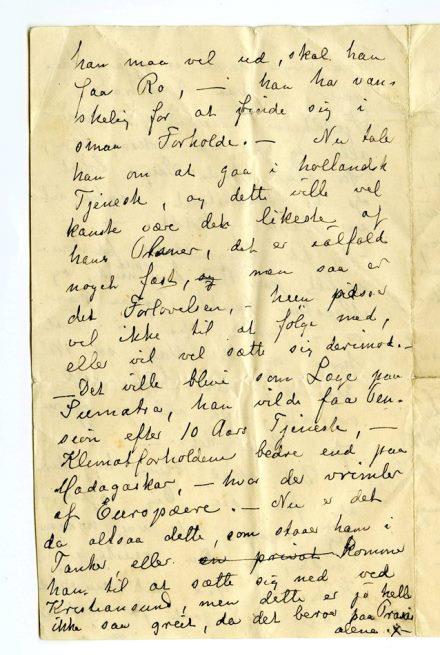 han maa vel ud, skal han
faa Ro, — han har van-
skelig for at finde sig i
smaa Forholde. — Nu tale
han om at gaa i hollandsk
Tjeneste, og dette ville vel
kanske være det likeste af
hans Planer, det er ialfald
noget fast, og men saa er
det Forlovelsen, — hun passer
vel ikke til at følge med,
eller vil vel sætte sig derimod. —
— Det ville blive som Læge paa
Sumatra, han vilde faa Pen-
sion efter 10 Aars Tjeneste, —
Klimatforholdene bedre end paa
Madagaskar, — hvor det vrimler
af Europæere. — Nu er det
da altsaa dette, som staaer ham i
Tanke, eller en privat komme
han til at sætte sig ned ved
Kristiansund, men dette er jo heller
ikke saa greit, da det beror paa Praxis
alene. —